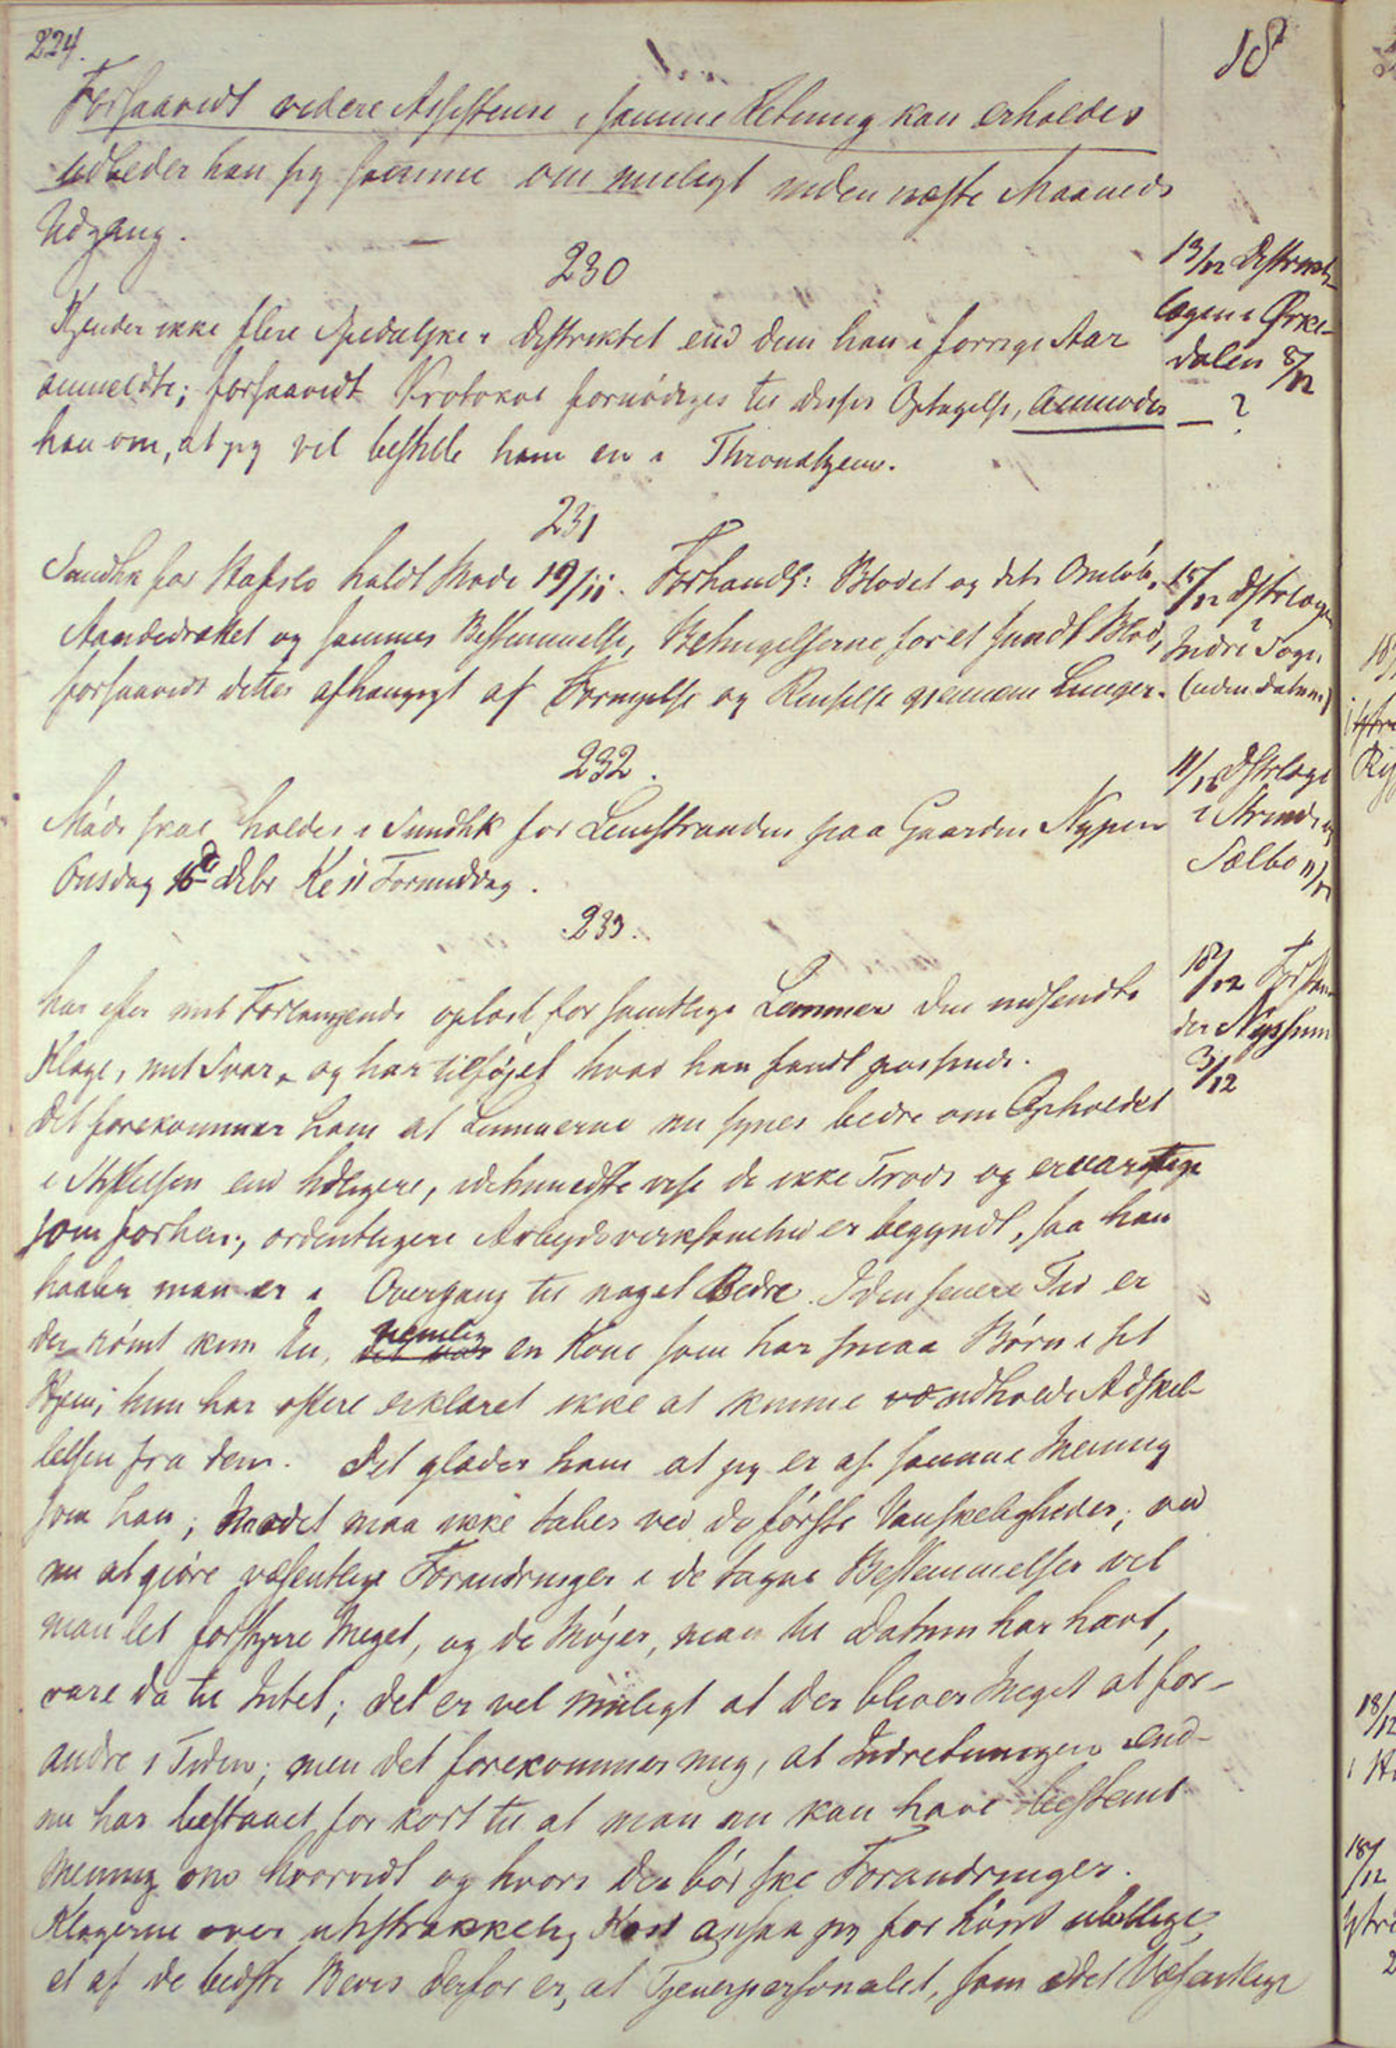 224.
18
Forsaavidt videre Assistense i samme Retning kan erholdes
udbeder han sig samme om muligt inden næste Maaneds
Udgang.
230
13/12 Distrikts-
lægen i Ørke-
dalen 8/12
Kjender ikke flere Spedalske i Distriktet end dem han i forrige Aar
anmeldte; forsaavidt Protokol fornødiges til disses Optagelse, anmodes
— ?
han om, at jeg vil bestille ham en i Throndhjem.
231
15/12 Dstrlægen
Indre Sogn
(uden datum)
Sundhk for Hafslo holdt Møde 19/11. Forhandl: Blodet og dets Omløb,
Aandedrættet og sammes Bestemmelse, Betingelserne for et sundt Blod,
forsaavidt dette er afhængigt af Fornyelse og Renselse gjennem Lunger.
232.
11/12 Dstrlæge
i Strinde og
Sælbo 11/12
Møde skal holdes i Sundhk for Leinstranden paa Gaarden Nypen
Onsdag 16de Debr Kl 11 Formiddag.
233.
18/12 Forstan
der Nyssum
3/12
har efter mit Forlangende oplæst for samtlige Lemmer den indsendte
Klage, mit Svar, og har tilføjet hvad han fandt passende.
Det forekommer ham at Lemmerne nu synes bedre om Opholdet
i Stiftelsen end tidligere, idetmindste vise de ikke Trods og er
som forhen; ordentligere Arbejdsvirksomhed er begyndt, saa han
haaber man er i Overgang til noget Bedre. I den senere Tid er
der rømt kun En, nemlig en Kone som har smaa Børn i sit
Hjem; hun har oftere erklæret ikke at kunne udholde Adskil-
lelsen fra dem. Det glæder ham at jeg er af samme Mening
som han; Modet maa ikke tabes ved de første Vanskeligheder; ved
nu at gjøre væsentlige Forandringer i de tagne Bestemmelser vil
man let forstyrre Meget, og de Møjer, man til Datum har havt,
vare da til Intet; det er vel muligt at der bliver Meget at for-
andre i Tiden; men det forekommer mig, at Indretningen end-
nu har bestaaet for kort til at man nu kan have bestemt
Mening om hvorvidt og hvori der bør ske Forandringer.
Klagerne over utilstrækkelig Kost anser jeg for høist ubillige,
et af de bedste Bevis derfor er, at Tjenerpersonalet, som i det Væsentlige